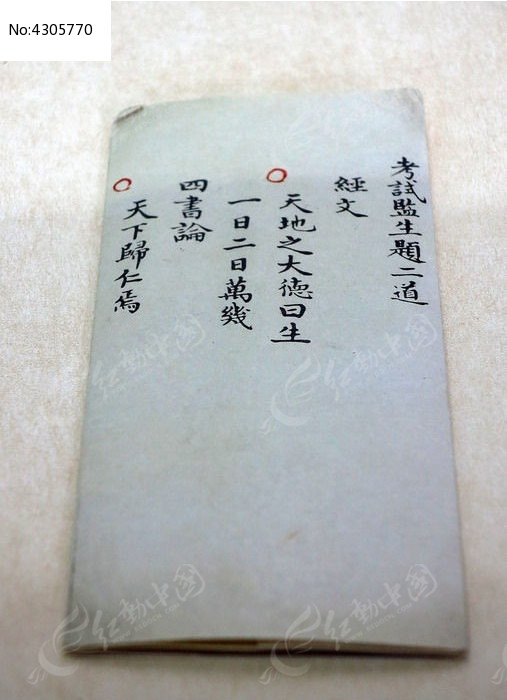 No:4305770
考試監生題二道
經文
天地之大德曰生
一日二日萬幾
四書論
天下歸仁焉
红动中国
红动中国
红动中国
红动中国